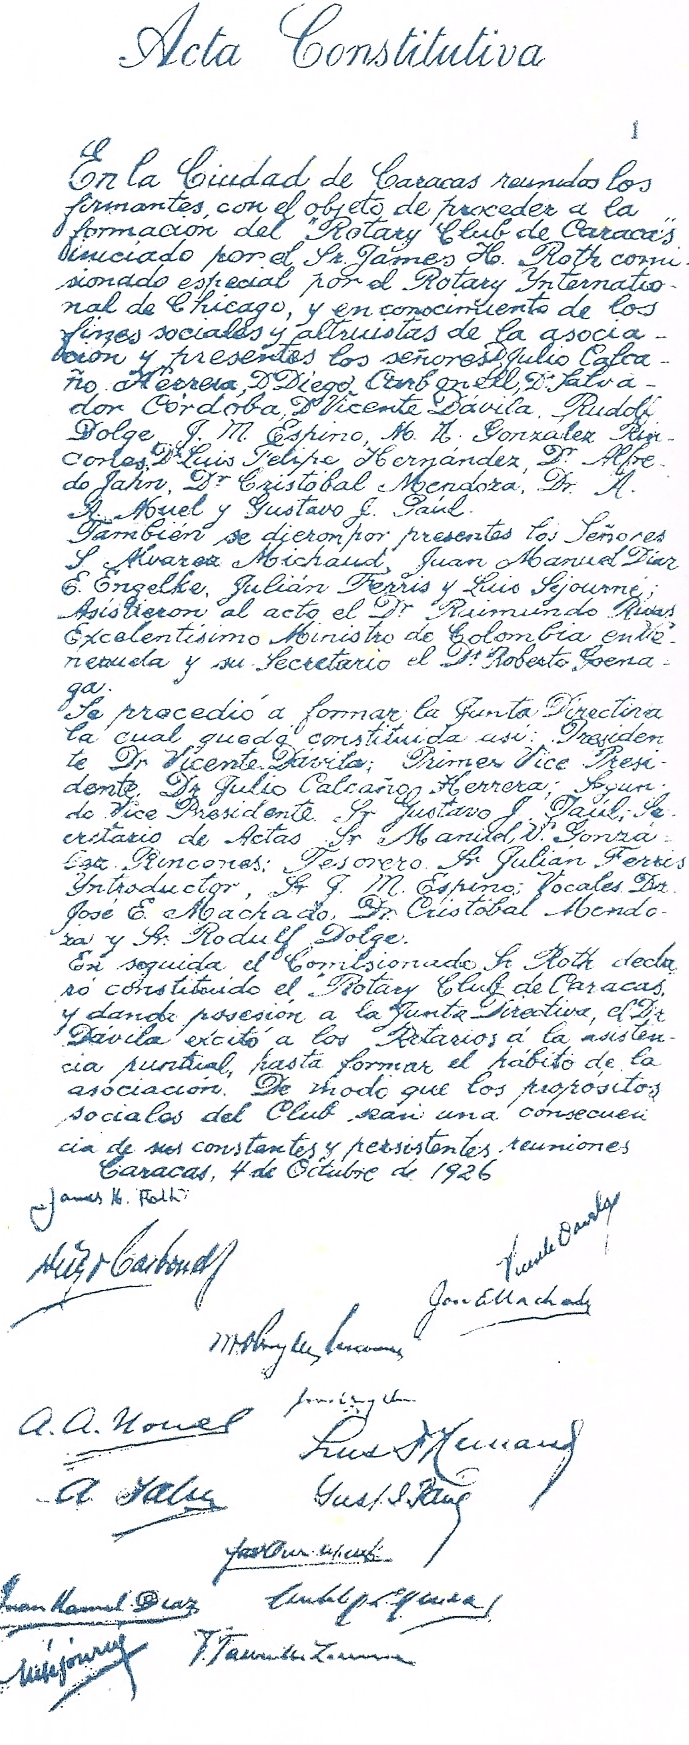 Acta Constitutiva
1
En la Ciudad de Caracas reunidos los
firmantes, con el objeto de proceder a la
formación del "Rotary Club de Caracas"
iniciado por el Sr. James H. Roth comi-
sionado especial por el Rotary Ynternatio-
nal de Chicago, y en conocimiento de los
fines sociales y altruistas de la asocia-
ción y presentes los señores Dr Julio Calca-
ño Herrera, Dr Diego Carbonell, Dr Salva-
dor Córdoba, Dr Vicente Dávila, Rudolf
Dolge, J. M. Espino, M. N. González Rin-
cones, Dr Luis Felipe Hernández, Dr. Alfre-
do Jahn, Dr Cristóbal Mendoza, Dr. A.
A. Nouel y Gustavo J. Paúl.
También se dieron por presentes los Señores
S Alvarez Michaud, Juan Manuel Díaz
E. Engelke, Julián Ferris y Luis Sejourné;
Asistieron al acto el Dr Raimundo Rivas
Excelentísimo Ministro de Colombia en Ve-
nezuela y su Secretario el Dr Roberto Goena-
ga.
Se procedió a formar la Junta Directiva
la cual quedó constituida así: Presiden
te Dr Vicente Dávila; Primer Vice Presi-
dente, Dr Julio Calcaño Herrera; Segun-
do Vice Presidente Sr Gustavo J. Paúl; Se-
cretario de Actas Sr Manuel N. Gonzá-
lez Rincones; Tesorero Sr Julián Ferris
Yntroductor, Sr J. M. Espino; Vocales Dr.
José E. Machado, Dr. Cristóbal Mendo-
za y Sr. Rodulf Dolge.
En seguida el Comisionado Sr Roth decla
ró constituido el "Rotary Club de Caracas,
y dando posesión a la Junta Directiva, el Dr
Dávila excitó a los Rotarios á la asisten-
cia puntual, hasta formar el hábito de la
asociación. De modo que los propósitos
sociales del Club sean una consecuen
cia de sus constantes y persistentes reuniones
Caracas, 4 de Octubre de 1926
James H. Roth
Diego Carbonell
Vicente Dávila
José E Machado
A. A. Nouel
Luis F Hernand
A. Jahn
Gust. J. Paúl
Juan Manuel Diaz
Luis Sejourné